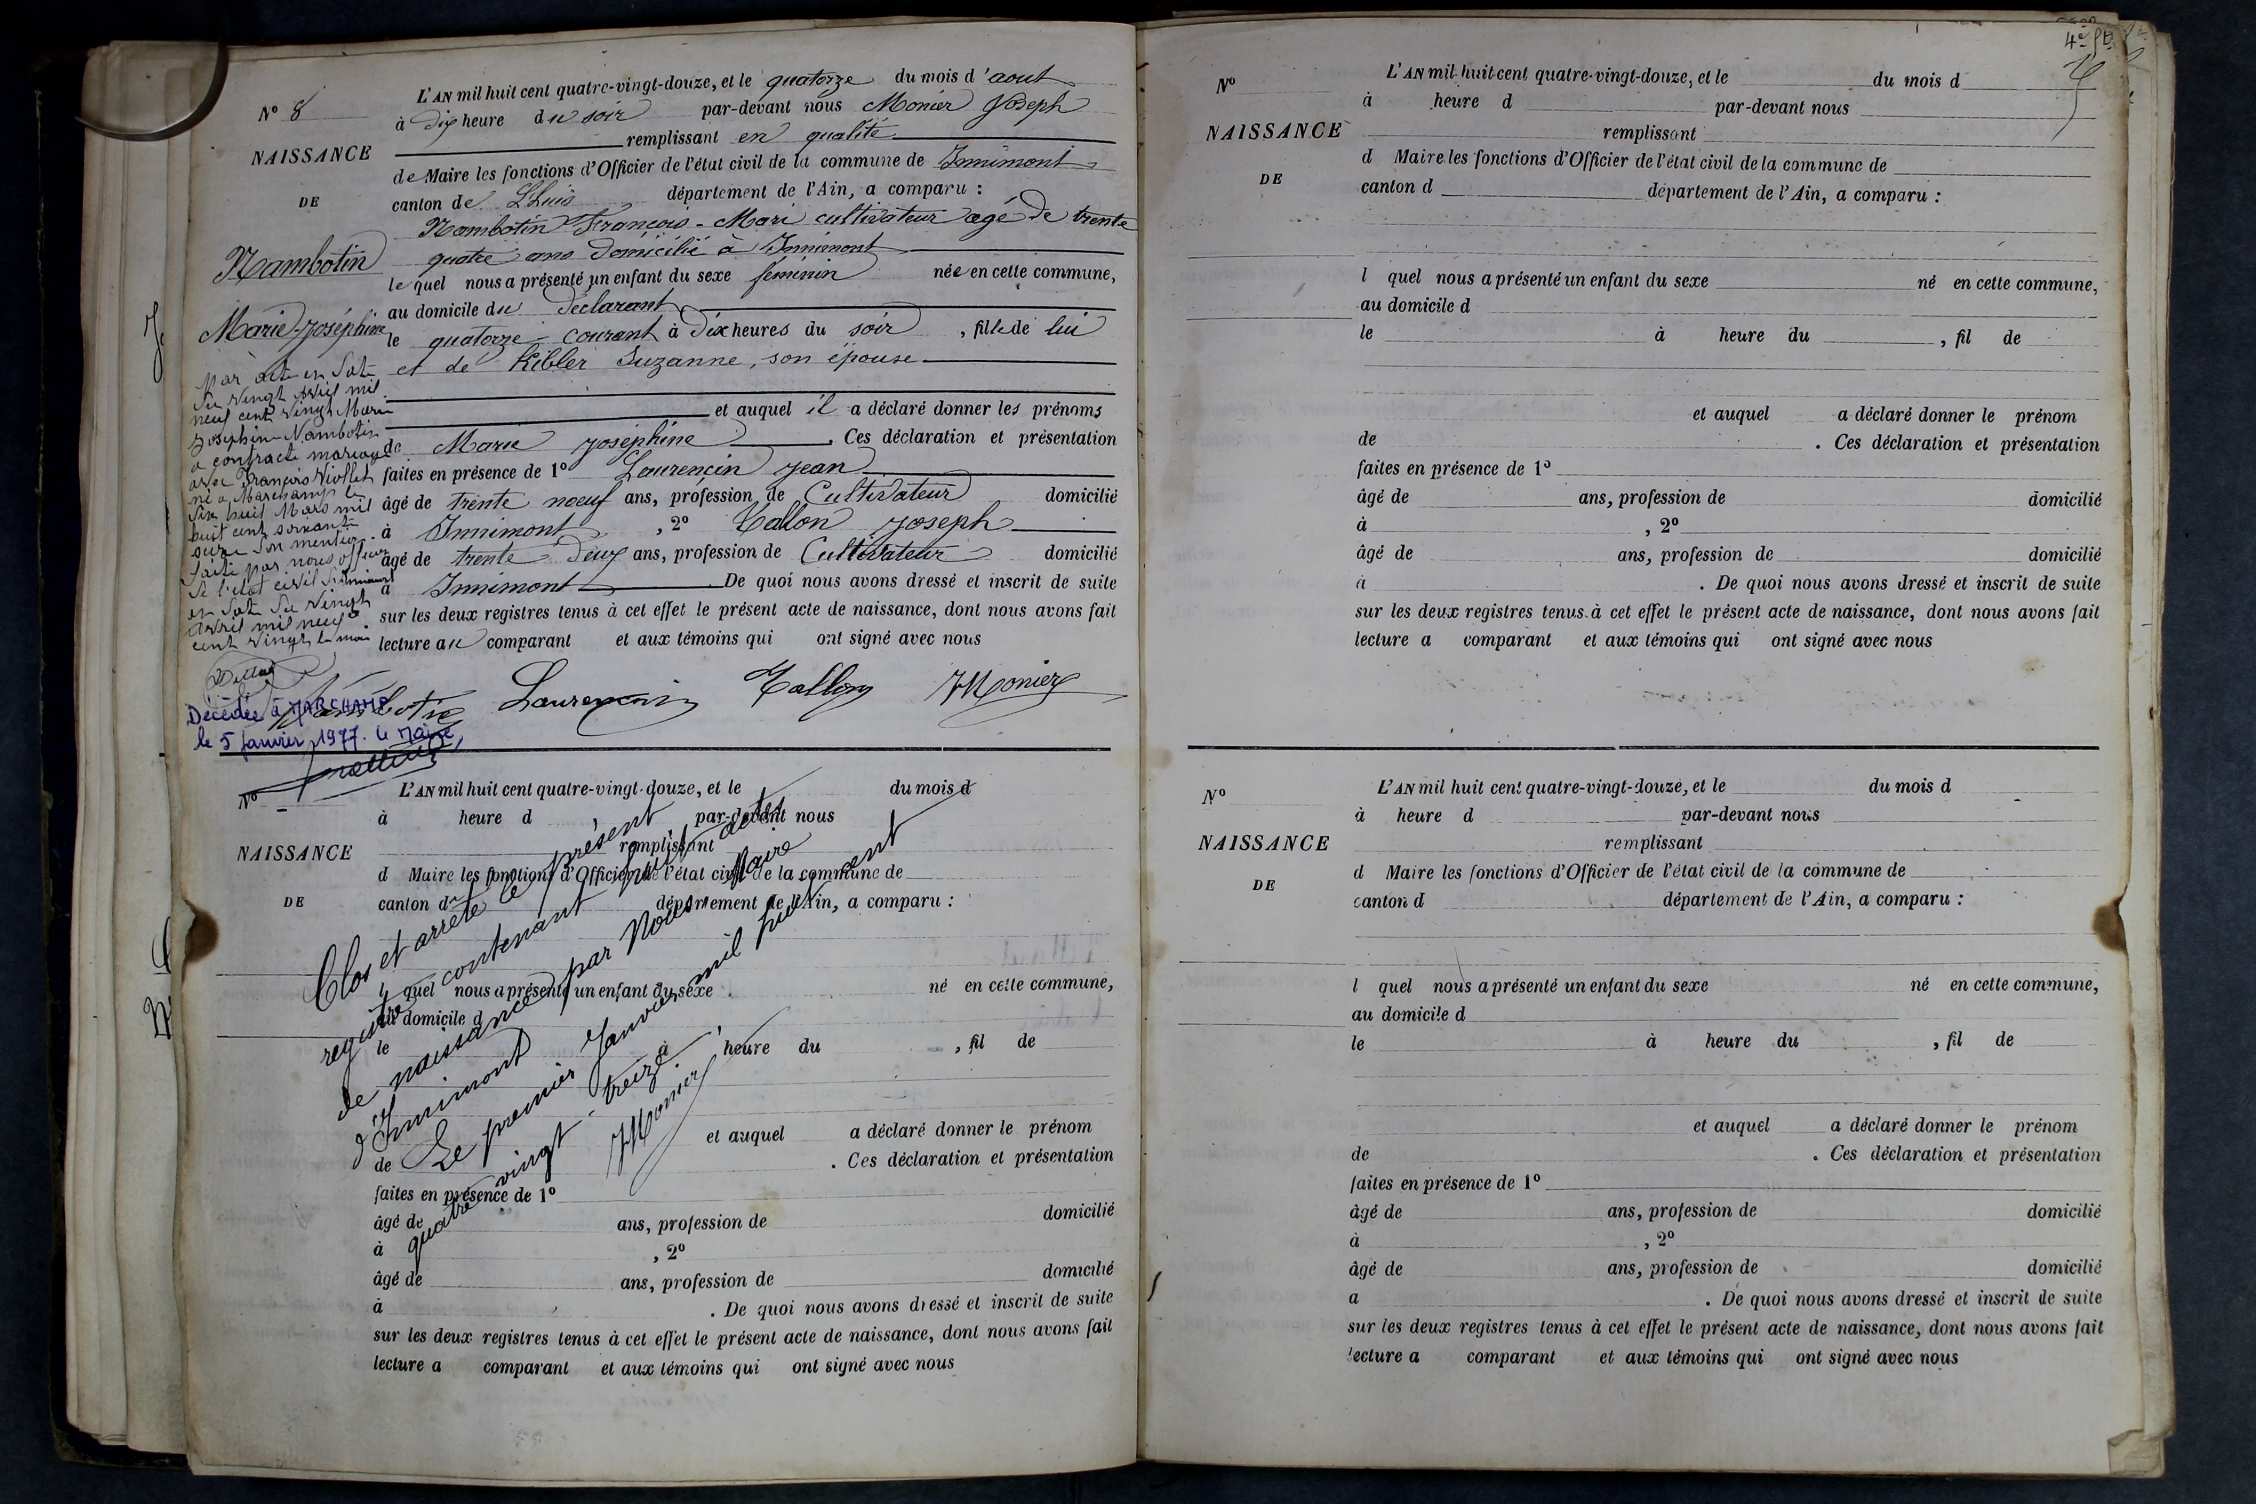 N° 8
NAISSANCE
DE
Nambotin
Marie-Joséphine
L'AN mil huit cent quatre-vingt-douze, et le quatorze du mois d'aout
à dix heure du soir par-devant nous Monier Joseph
remplissant en qualité
de Maire les fonctions d'Officier de l'état civil de la commune de Innimont
canton de Lhuis département de l'Ain, a comparu :
Nambotin François-Mari cultivateur agé de trente
quatre ans domicilié à Innimont
le quel nous a présenté un enfant du sexe féminin née en cette commune,
au domicile du déclarant
le quatorze courant à dix heures du soir, fille de lui
et de Kibler Suzanne, son épouse
et auquel il a déclaré donner les prénoms
de Marie Joséphine. Ces déclaration et présentation
faites en présence de 1° Laurencin Jean
âgé de trente neuf ans, profession de Cultivateur domicilié
à Innimont, 2° Tallon Joseph
âgé de trente deux ans, profession de Cultivateur domicilié
à Innimont De quoi nous avons dressé et inscrit de suite
sur les deux registres tenus à cet effet le présent acte de naissance, dont nous avons fait
lecture au comparant et aux témoins qui ont signé avec nous
Nambotin Laurencin Tallon JMonier
par acte en date
du vingt avril mil
neuf cent vingt Marie
Joséphine Nambotin
a contracté mariage
avec François Viollet
né a Marchamp le
dix huit Mars mil
huit cent soixante
seize Son mention
faite par nous officier
de l'état civil d'Innimont
en date du vingt
avril mil neuf
cent vingt le maire
Décédée à MARCHAMP
le 5 janvier 1977. Le Maire,
N°
NAISSANCE
DE
L'AN mil huit cent quatre-vingt-douze, et le du mois d
à heure d par-devant nous
remplissant
d Maire les fonctions d'Officier de l'état civil de la commune de
canton d département de l'Ain, a comparu :
l quel nous a présenté un enfant du sexe né en cette commune,
au domicile d
le à heure du , fil de
et auquel a déclaré donner le prénom
de . Ces déclaration et présentation
faites en présence de 1°
âgé de ans, profession de domicilié
à , 2°
âgé de ans, profession de domicilié
à . De quoi nous avons dressé et inscrit de suite
sur les deux registres tenus à cet effet le présent acte de naissance, dont nous avons fait
lecture a comparant et aux témoins qui ont signé avec nous
Clos et arrêté le présent
registre contenant huit actes
de naissance par Nous Maire
d'Innimont
Le premier Janvier mil huit cent
quatre vingt-treize.
JMonier
4e
N°
NAISSANCE
DE
L'AN mil huit cent quatre-vingt-douze, et le du mois d
à heure d par-devant nous
remplissant
d Maire les fonctions d'Officier de l'état civil de la commune de
canton d département de l'Ain, a comparu :
l quel nous a présenté un enfant du sexe né en cette commune,
au domicile d
le à heure du , fil de
et auquel a déclaré donner le prénom
de . Ces déclaration et présentation
faites en présence de 1°
âgé de ans, profession de domicilié
à , 2°
âgé de ans, profession de domicilié
à . De quoi nous avons dressé et inscrit de suite
sur les deux registres tenus à cet effet le présent acte de naissance, dont nous avons fait
lecture a comparant et aux témoins qui ont signé avec nous
N°
NAISSANCE
DE
L'AN mil huit cent quatre-vingt-douze, et le du mois d
à heure d par-devant nous
remplissant
d Maire les fonctions d'Officier de l'état civil de la commune de
canton d département de l'Ain, a comparu :
l quel nous a présenté un enfant du sexe né en cette commune,
au domicile d
le à heure du , fil de
et auquel a déclaré donner le prénom
de . Ces déclaration et présentation
faites en présence de 1°
âgé de ans, profession de domicilié
à , 2°
âgé de ans, profession de domicilié
a . De quoi nous avons dressé et inscrit de suite
sur les deux registres tenus à cet effet le présent acte de naissance, dont nous avons fait
lecture a comparant et aux témoins qui ont signé avec nous